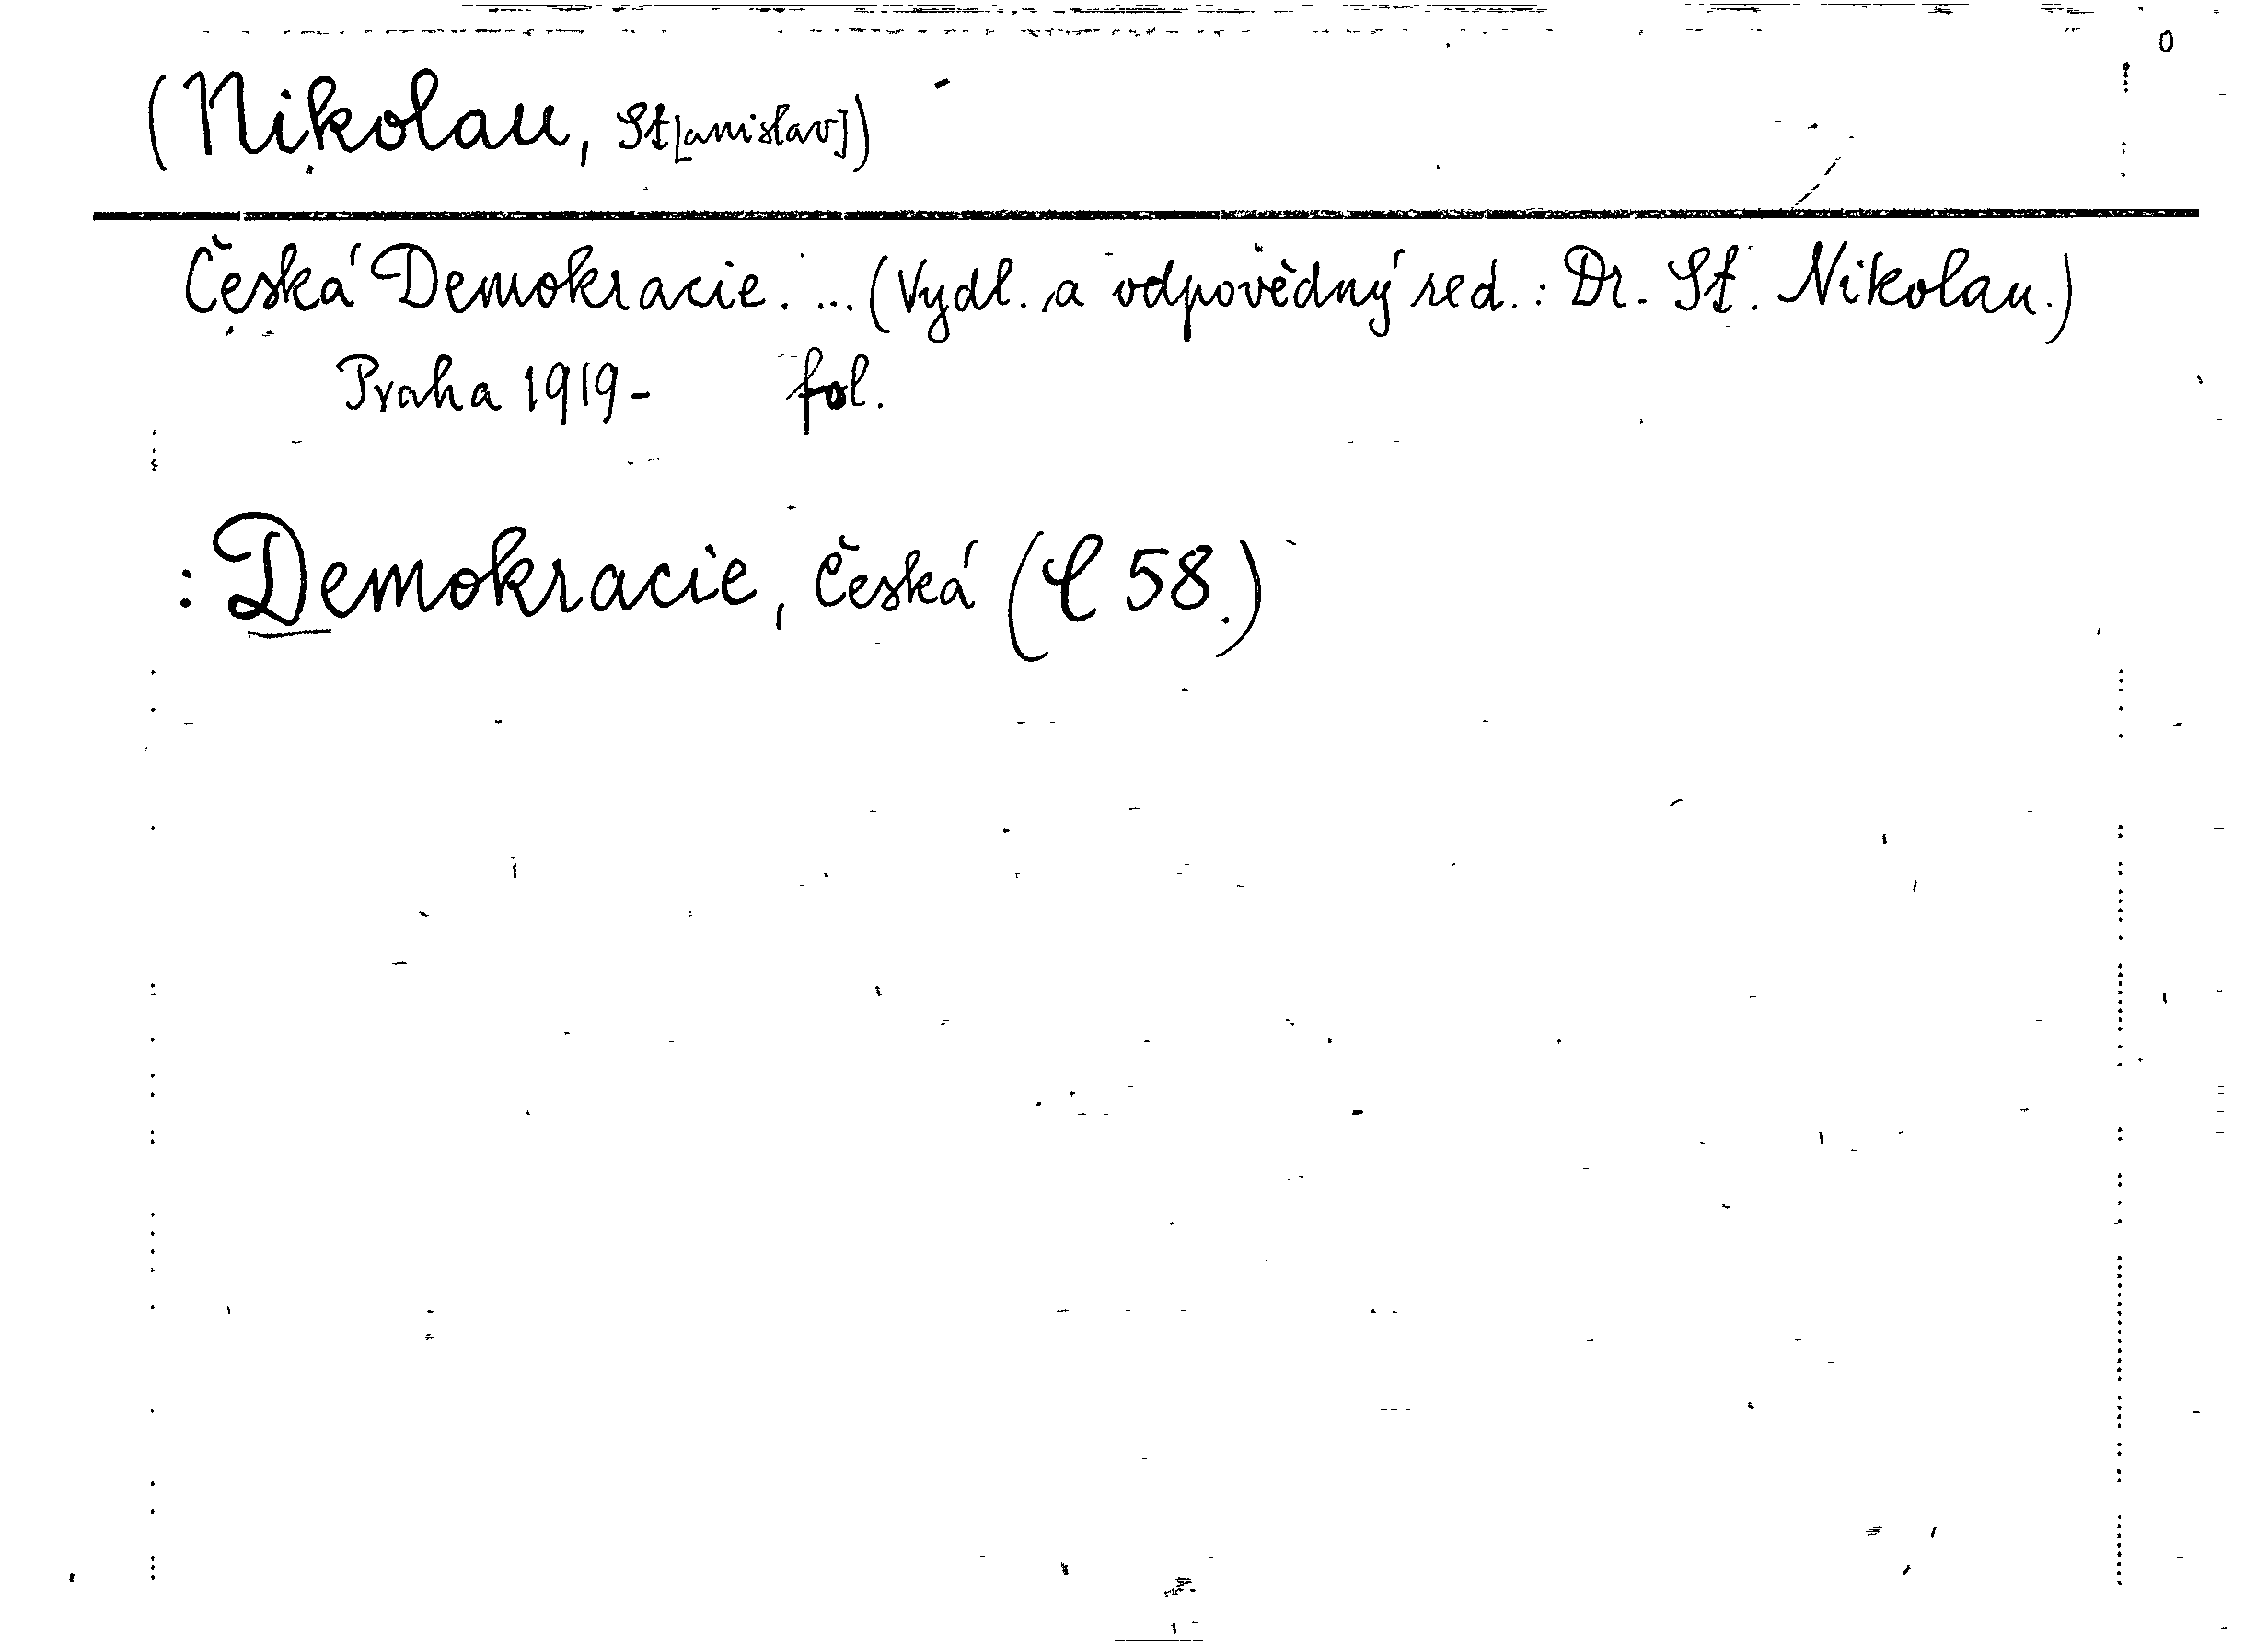 (Nikolau, St[anislav])
Česká Demokracie. ... (Vydl. a odpovědný red.: Dr. St. Nikolau.)
Praha 1919- fol.
: Demokracie, Česká (C 58.)